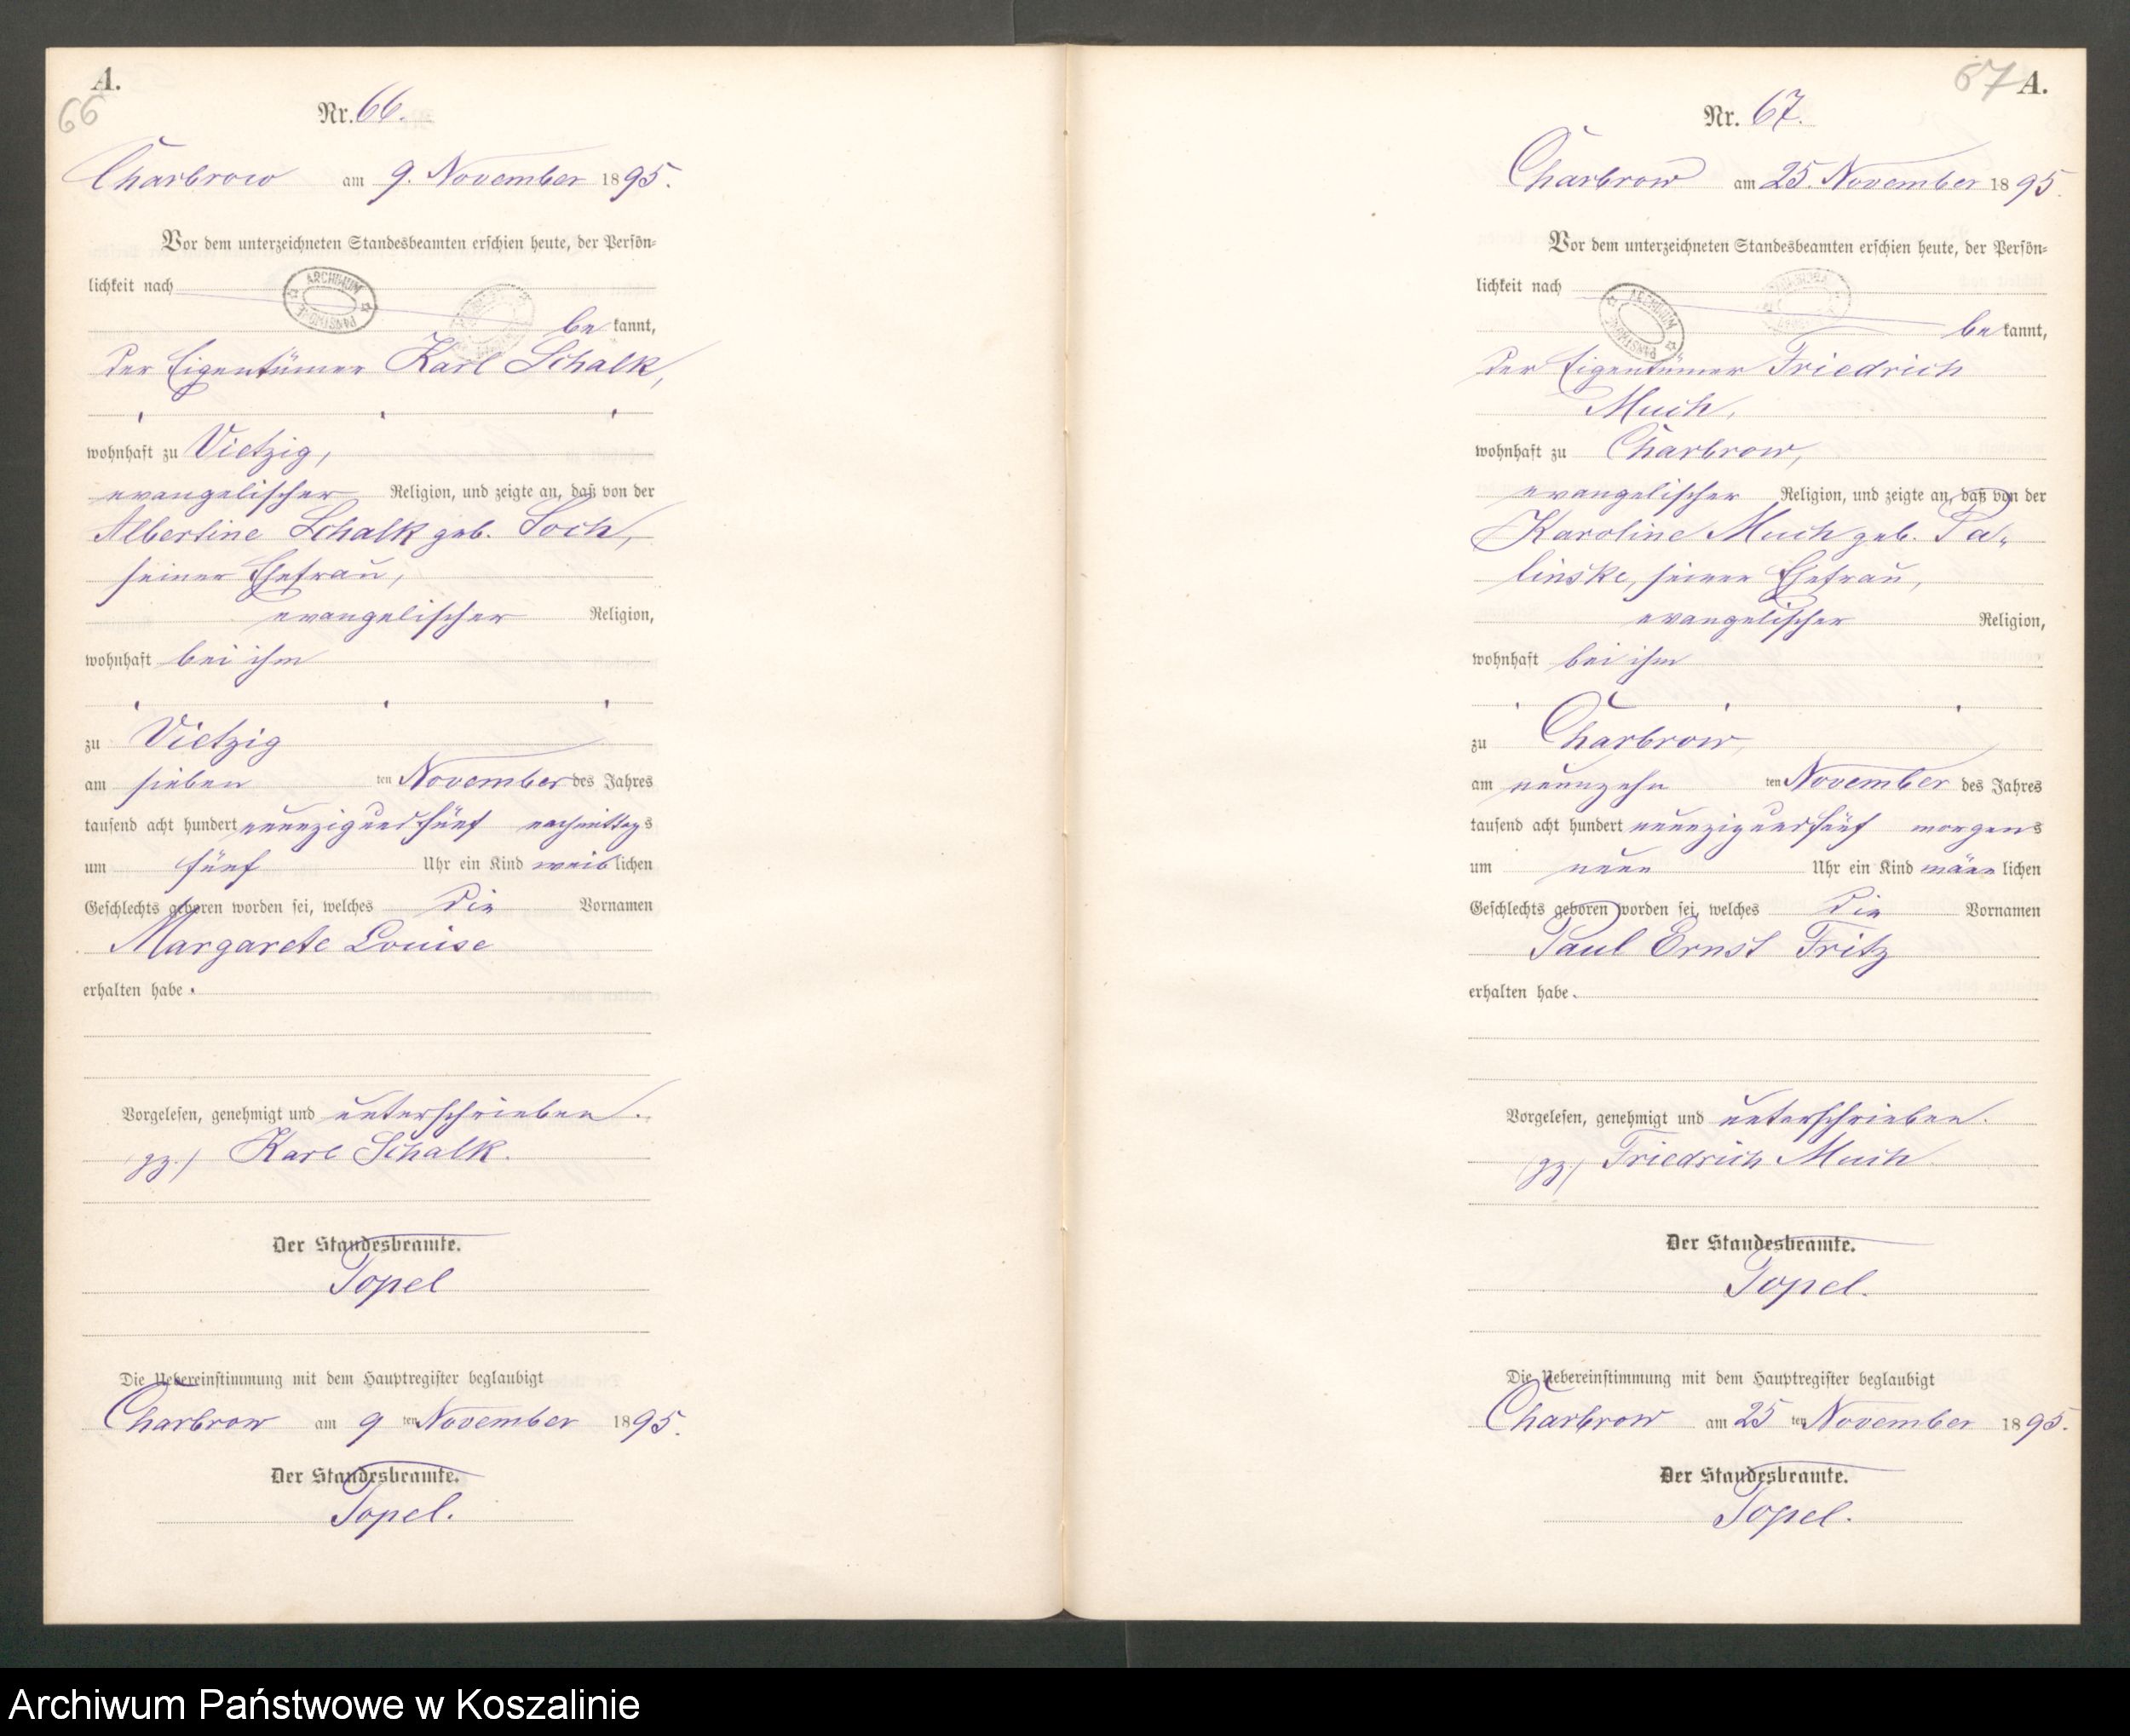 A.
66
Nr. 66.
Charbrow am 9. November 1895.
Vor dem unterzeichneten Standesbeamten erschien heute, der Persön-
lichkeit nach
be kannt,
der Eigentümer Karl Schalk,
wohnhaft zu Vietzig,
evangelischer Religion, und zeigte an, daß von der
Albertine Schalk geb. Soch,
seiner Ehefrau,
evangelischer Religion,
wohnhaft bei ihm
zu Vietzig
am sieben ten November des Jahres
tausend acht hundert neunzig und fünf nachmittags
um fünf Uhr ein Kind weib lichen
Geschlechts geboren worden sei, welches die Vornamen
Margarete Louise
erhalten habe.
Vorgelesen, genehmigt und unterschrieben.
(gz.) Karl Schalk.
Der Standesbeamte.
Topel
Die Uebereinstimmung mit dem Hauptregister beglaubigt
Charbrow am 9 ten November 1895.
Der Standesbeamte.
Topel.
67 A.
Nr. 67.
Charbrow am 25. November 1895.
Vor dem unterzeichneten Standesbeamten erschien heute, der Persön-
lichkeit nach
be kannt,
der Eigentümer Friedrich
Much,
wohnhaft zu Charbrow,
evangelischer Religion, und zeigte an, daß von der
Karoline Much geb. Pa-
linske, seiner Ehefrau,
evangelischer Religion,
wohnhaft bei ihm
zu Charbrow,
am neunzehn ten November des Jahres
tausend acht hundert neunzig und fünf morgens
um neun Uhr ein Kind männ lichen
Geschlechts geboren worden sei, welches die Vornamen
Paul Ernst Fritz
erhalten habe.
Vorgelesen, genehmigt und unterschrieben.
(gz.) Friedrich Much
Der Standesbeamte.
Topel.
Die Uebereinstimmung mit dem Hauptregister beglaubigt
Charbrow am 25 ten November 1895.
Der Standesbeamte.
Topel.
ARCHIWUM PAŃSTWOWE
ARCHIWUM PAŃSTWOWE
Archiwum Państwowe w Koszalinie